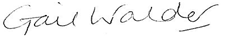 Gail Walder